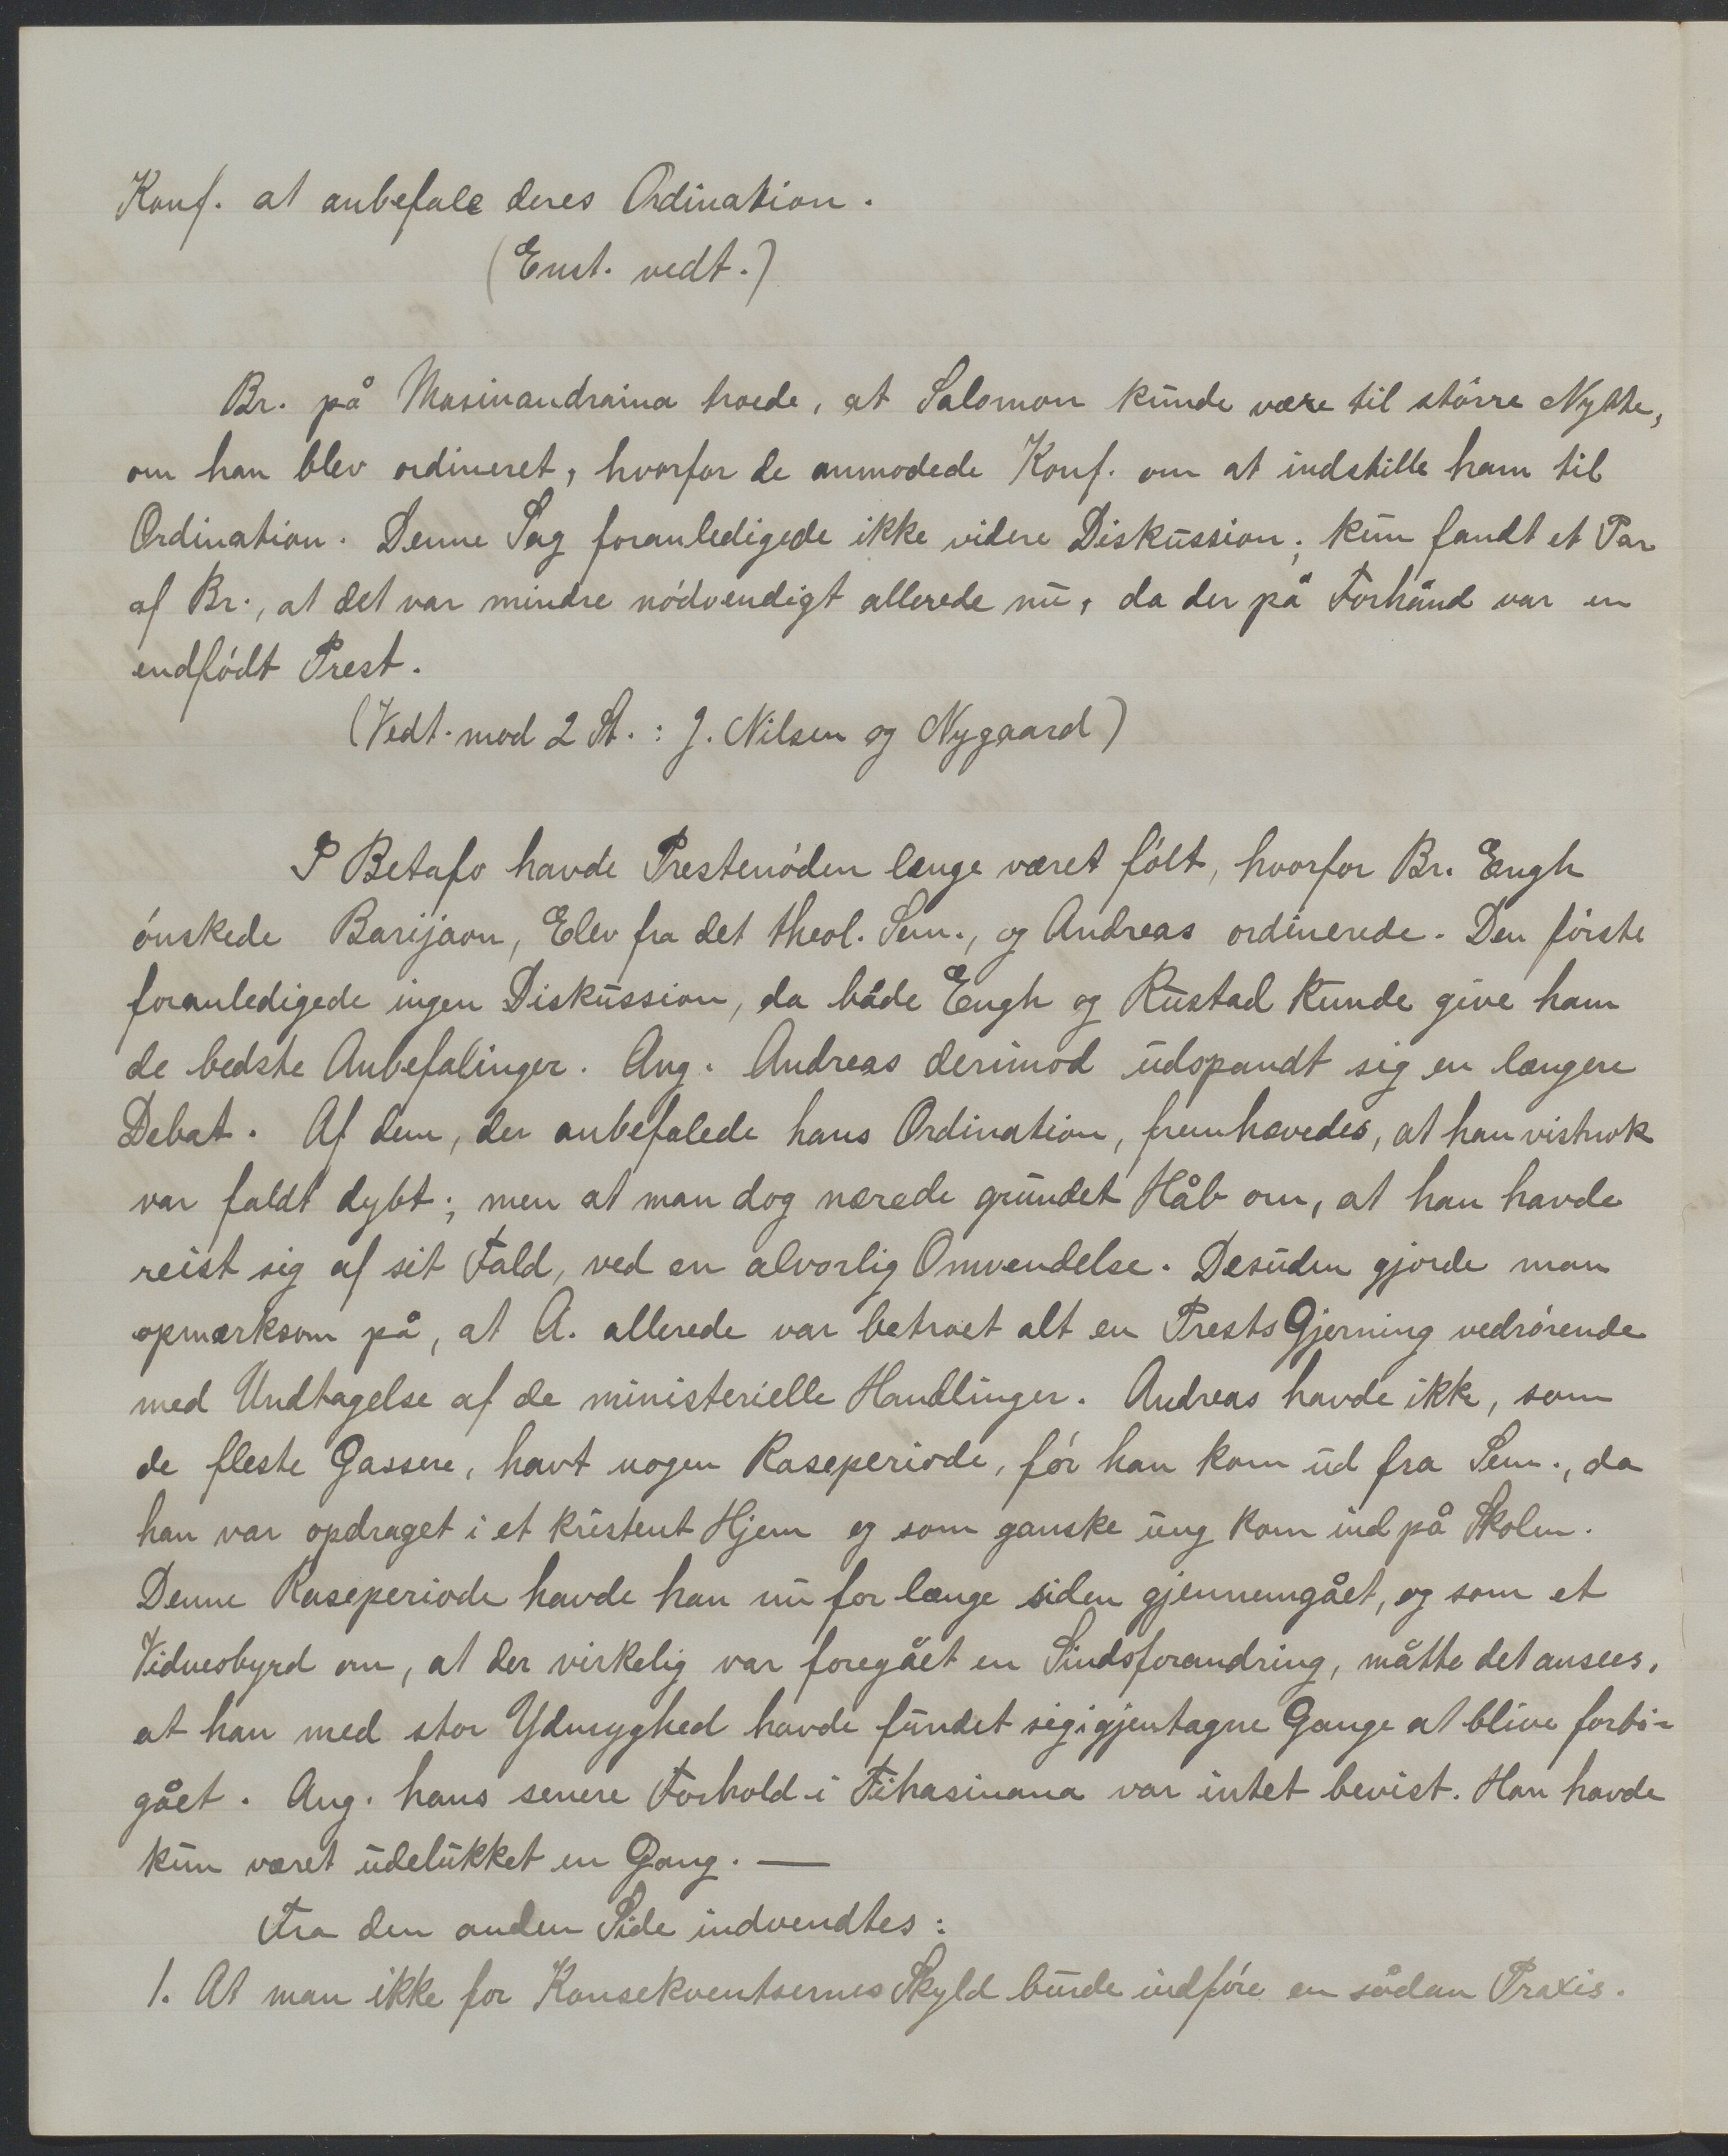 Konf. at anbefale deres Ordination.
(Enst. vedt.)
Br. på Masinandraina troede, at Salomon kunde være til större Nytte,
om han blev ordineret, hvorfor de anmodede Konf. om at indstille ham til
Ordination. Denne Sag foranledigede ikke videre Diskussion; kun fandt et Par
af Br., at det var mindre nödvendigt allerede nu, da der på Forhånd var en
endfödt Prest.
(Vedt. mod 2 St.: J. Nilsen og Nygaard)
I Betafo havde Prestenöden længe været fölt, hvorfor Br. Engh
önskede Barijaon, Elev fra det theol. Sem., og Andreas ordinerede. Den förste
foranledigede ingen Diskussion, da både Engh og Rustad kunde give ham
de bedste Anbefalinger. Ang. Andreas derimod udspandt sig en længere
Debat. Af dem, der anbefalede hans Ordination, fremhævedes, at han vistnok
var faldt dybt; men at man dog nærede grundet Håb om, at han havde
reist sig af sit Fald, ved en alvorlig Omvendelse. Desuden gjorde man
opmærksom på, at A. allerede var betroet alt en Prests Gjerning vedrörende
med Undtagelse af de ministerielle Handlinger. Andreas havde ikke, som
de fleste Gassere, havt nogen Raseperiode, för han kom ud fra Sem., da
han var opdraget i et kristent Hjem og som ganske ung kom ind på Skolen.
Denne Raseperiode havde han nu for længe siden gjennemgået, og som et
Vidnesbyrd om, at der virkelig var foregået en Sindsforandring, måtte det ansees,
at han med stor Ydmyghed havde fundet sig i gjentagne Gange at blive forbi-
gået. Ang. hans senere Forhold i Fihasinana var intet bevist. Han havde
kun været udelukket en Gang. —
Fra den anden Side indvendtes:
1. At man ikke for Konsekventsernes Skyld burde indföre en sådan Praxis.